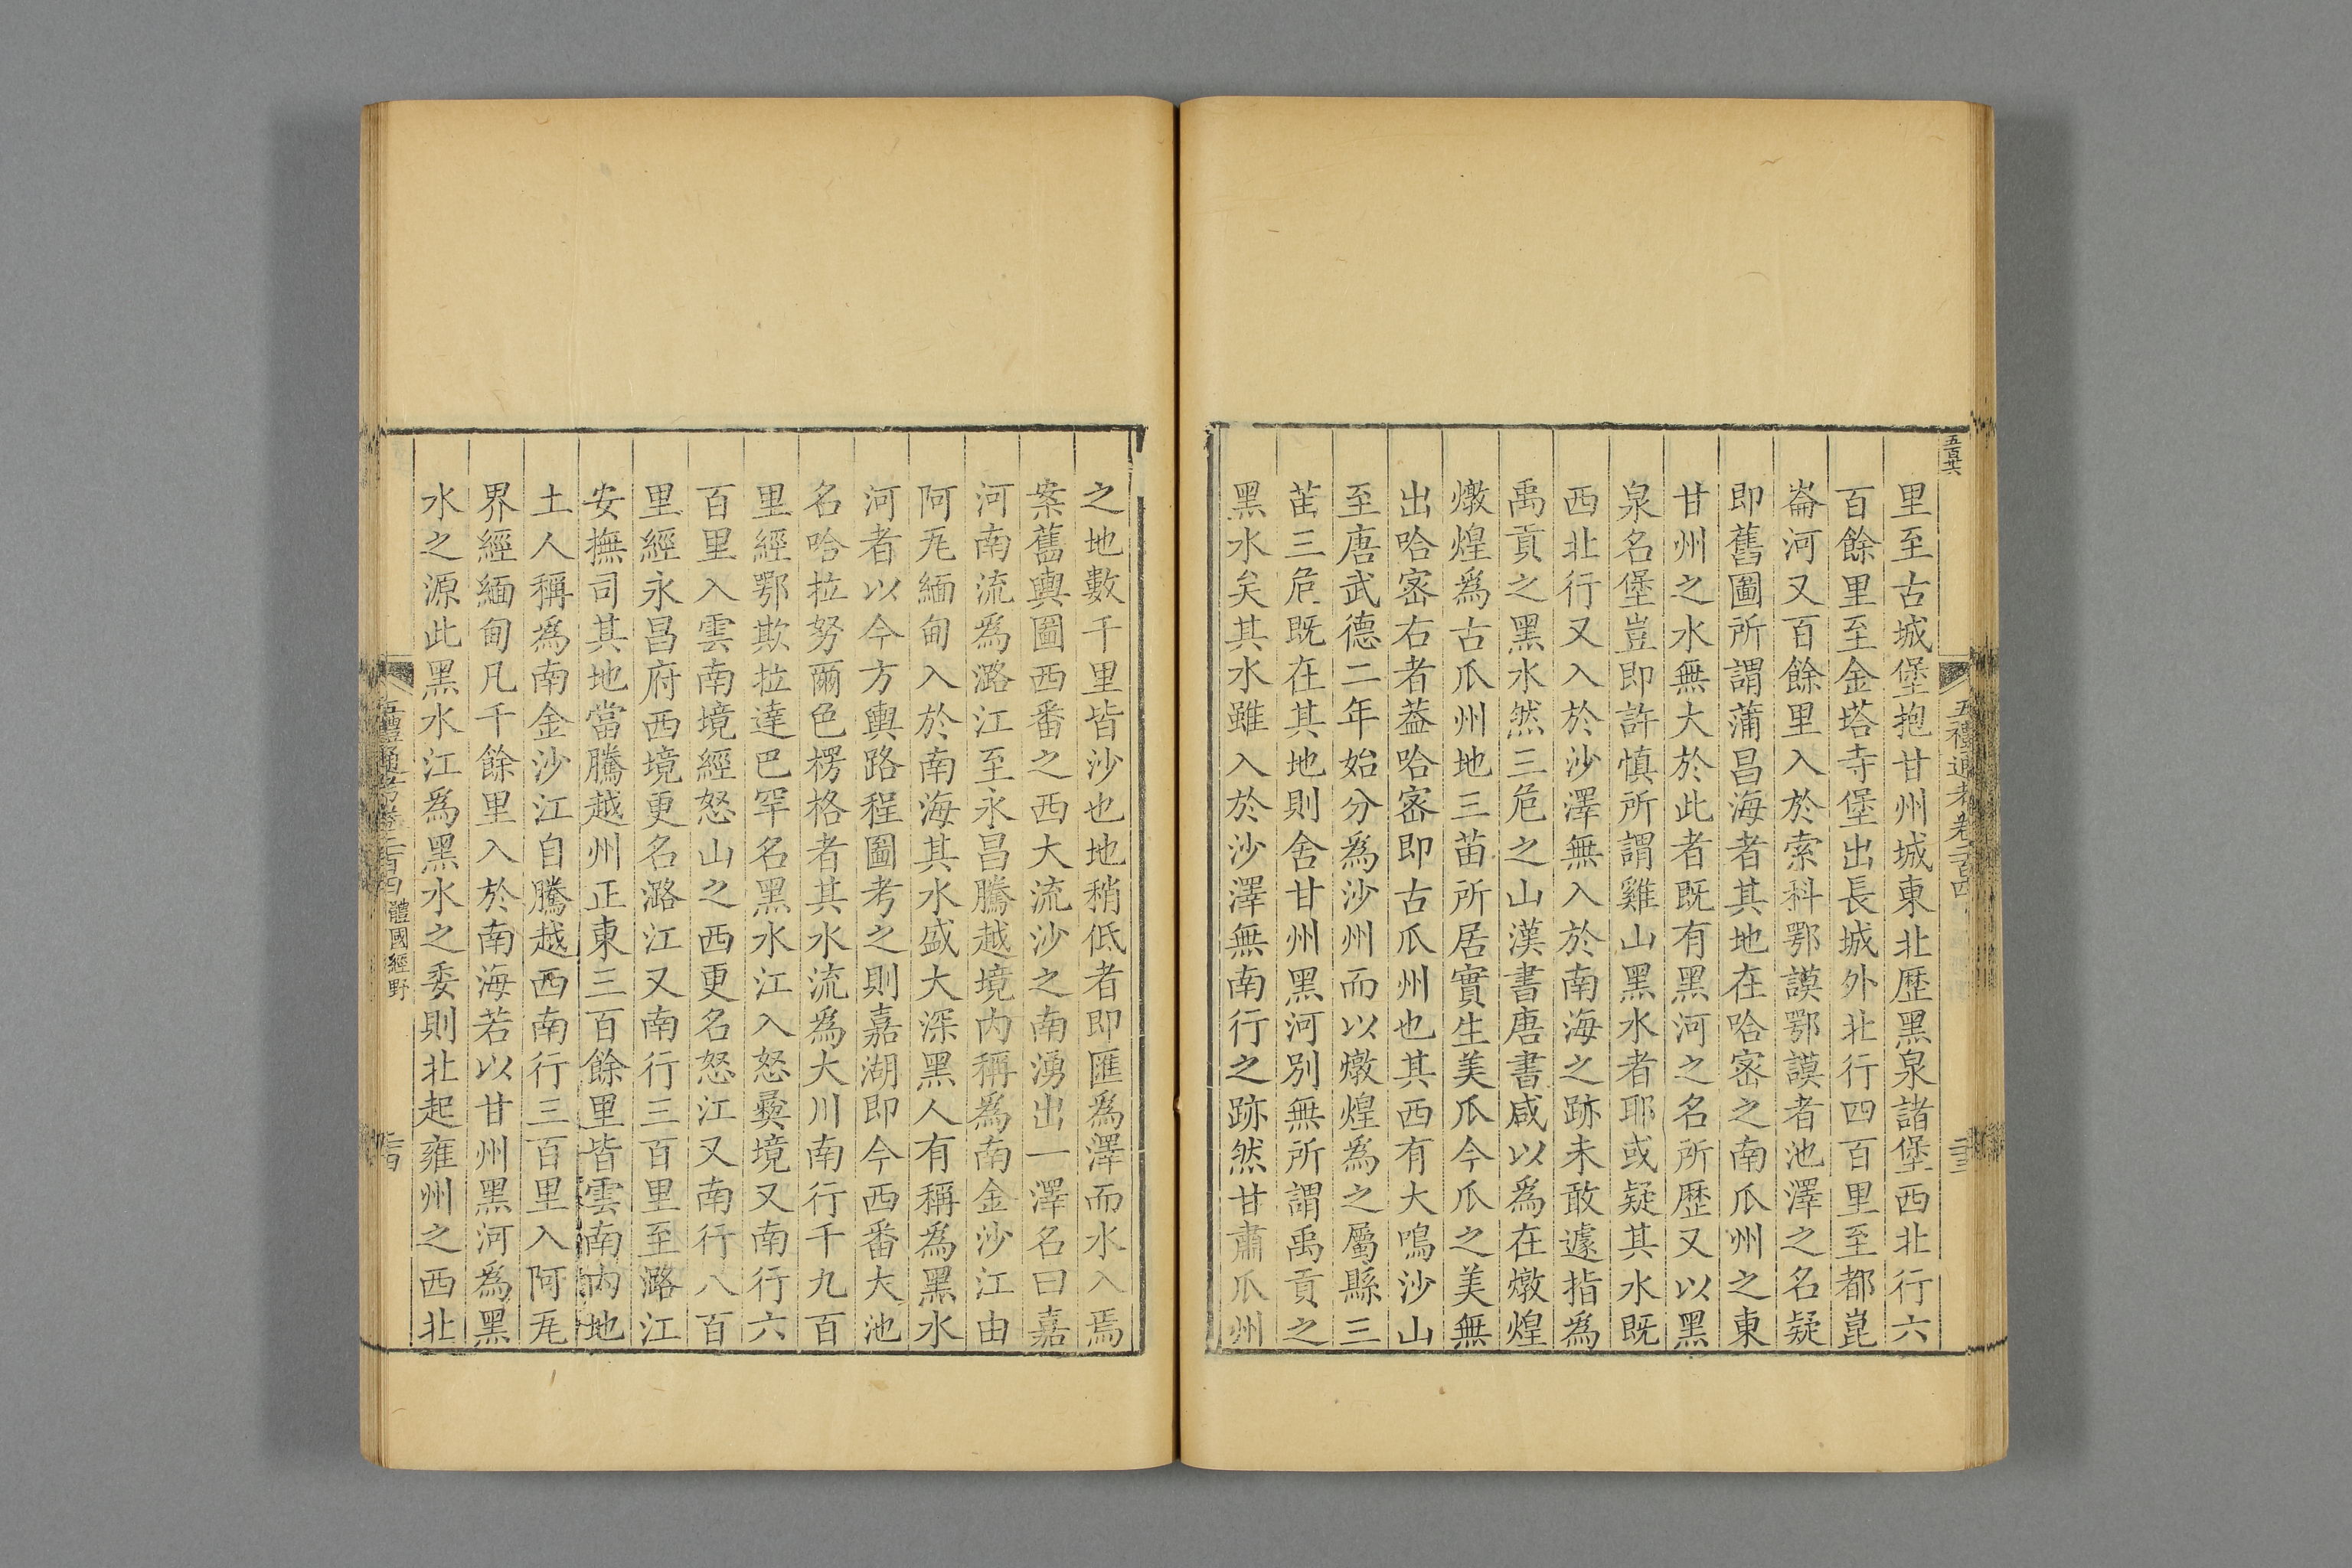 五百廿六
五禮通考卷二百四
二十三
里至古城堡抱甘州城東北歷黑泉諸堡西北行六
百餘里至金塔寺堡出長城外北行四百里至都崑
崙河又百餘里入於索科鄂謨鄂謨者池澤之名疑
即舊圖所謂蒲昌海者其地在哈宻之南瓜州之東
甘州之水無大於此者既有黑河之名所歷又以黑
泉名堡豈即許慎所謂雞山黑水者耶或疑其水既
西北行又入於沙澤無入於南海之跡未敢遽指為
禹貢之黑水然三危之山漢書唐書咸以為在燉煌
燉煌為古瓜州地三苗所居實生美瓜今瓜之美無
出哈宻右者葢哈宻即古瓜州也其西有大鳴沙山
至唐武德二年始分為沙州而以燉煌為之屬縣三
苖三危既在其地則舍甘州黑河別無所謂禹貢之
黑水矣其水雖入於沙澤無南行之跡然甘肅瓜州
之地數千里皆沙也地稍低者即匯為澤而水入焉
案舊輿圖西番之西大流沙之南湧出一澤名曰嘉
河南流為潞江至永昌騰越境内稱為南金沙江由
阿瓦緬甸入於南海其水盛大深黑人有稱為黑水
河者以今方輿路程圖考之則嘉湖即今西番大池
名哈拉努爾色楞格者其水流為大川南行千九百
里經鄂欺拉達巴罕名黑水江入怒彜境又南行六
百里入雲南境經怒山之西更名怒江又南行八百
里經永昌府西境更名潞江又南行三百里至潞江
安撫司其地當騰越州正東三百餘里皆雲南内地
土人稱為南金沙江自騰越西南行三百里入阿瓦
界經緬甸凡千餘里入於南海若以甘州黑河為黑
水之源此黑水江為黑水之委則北起雍州之西北
五禮通考卷二百四 體國經野
二十四